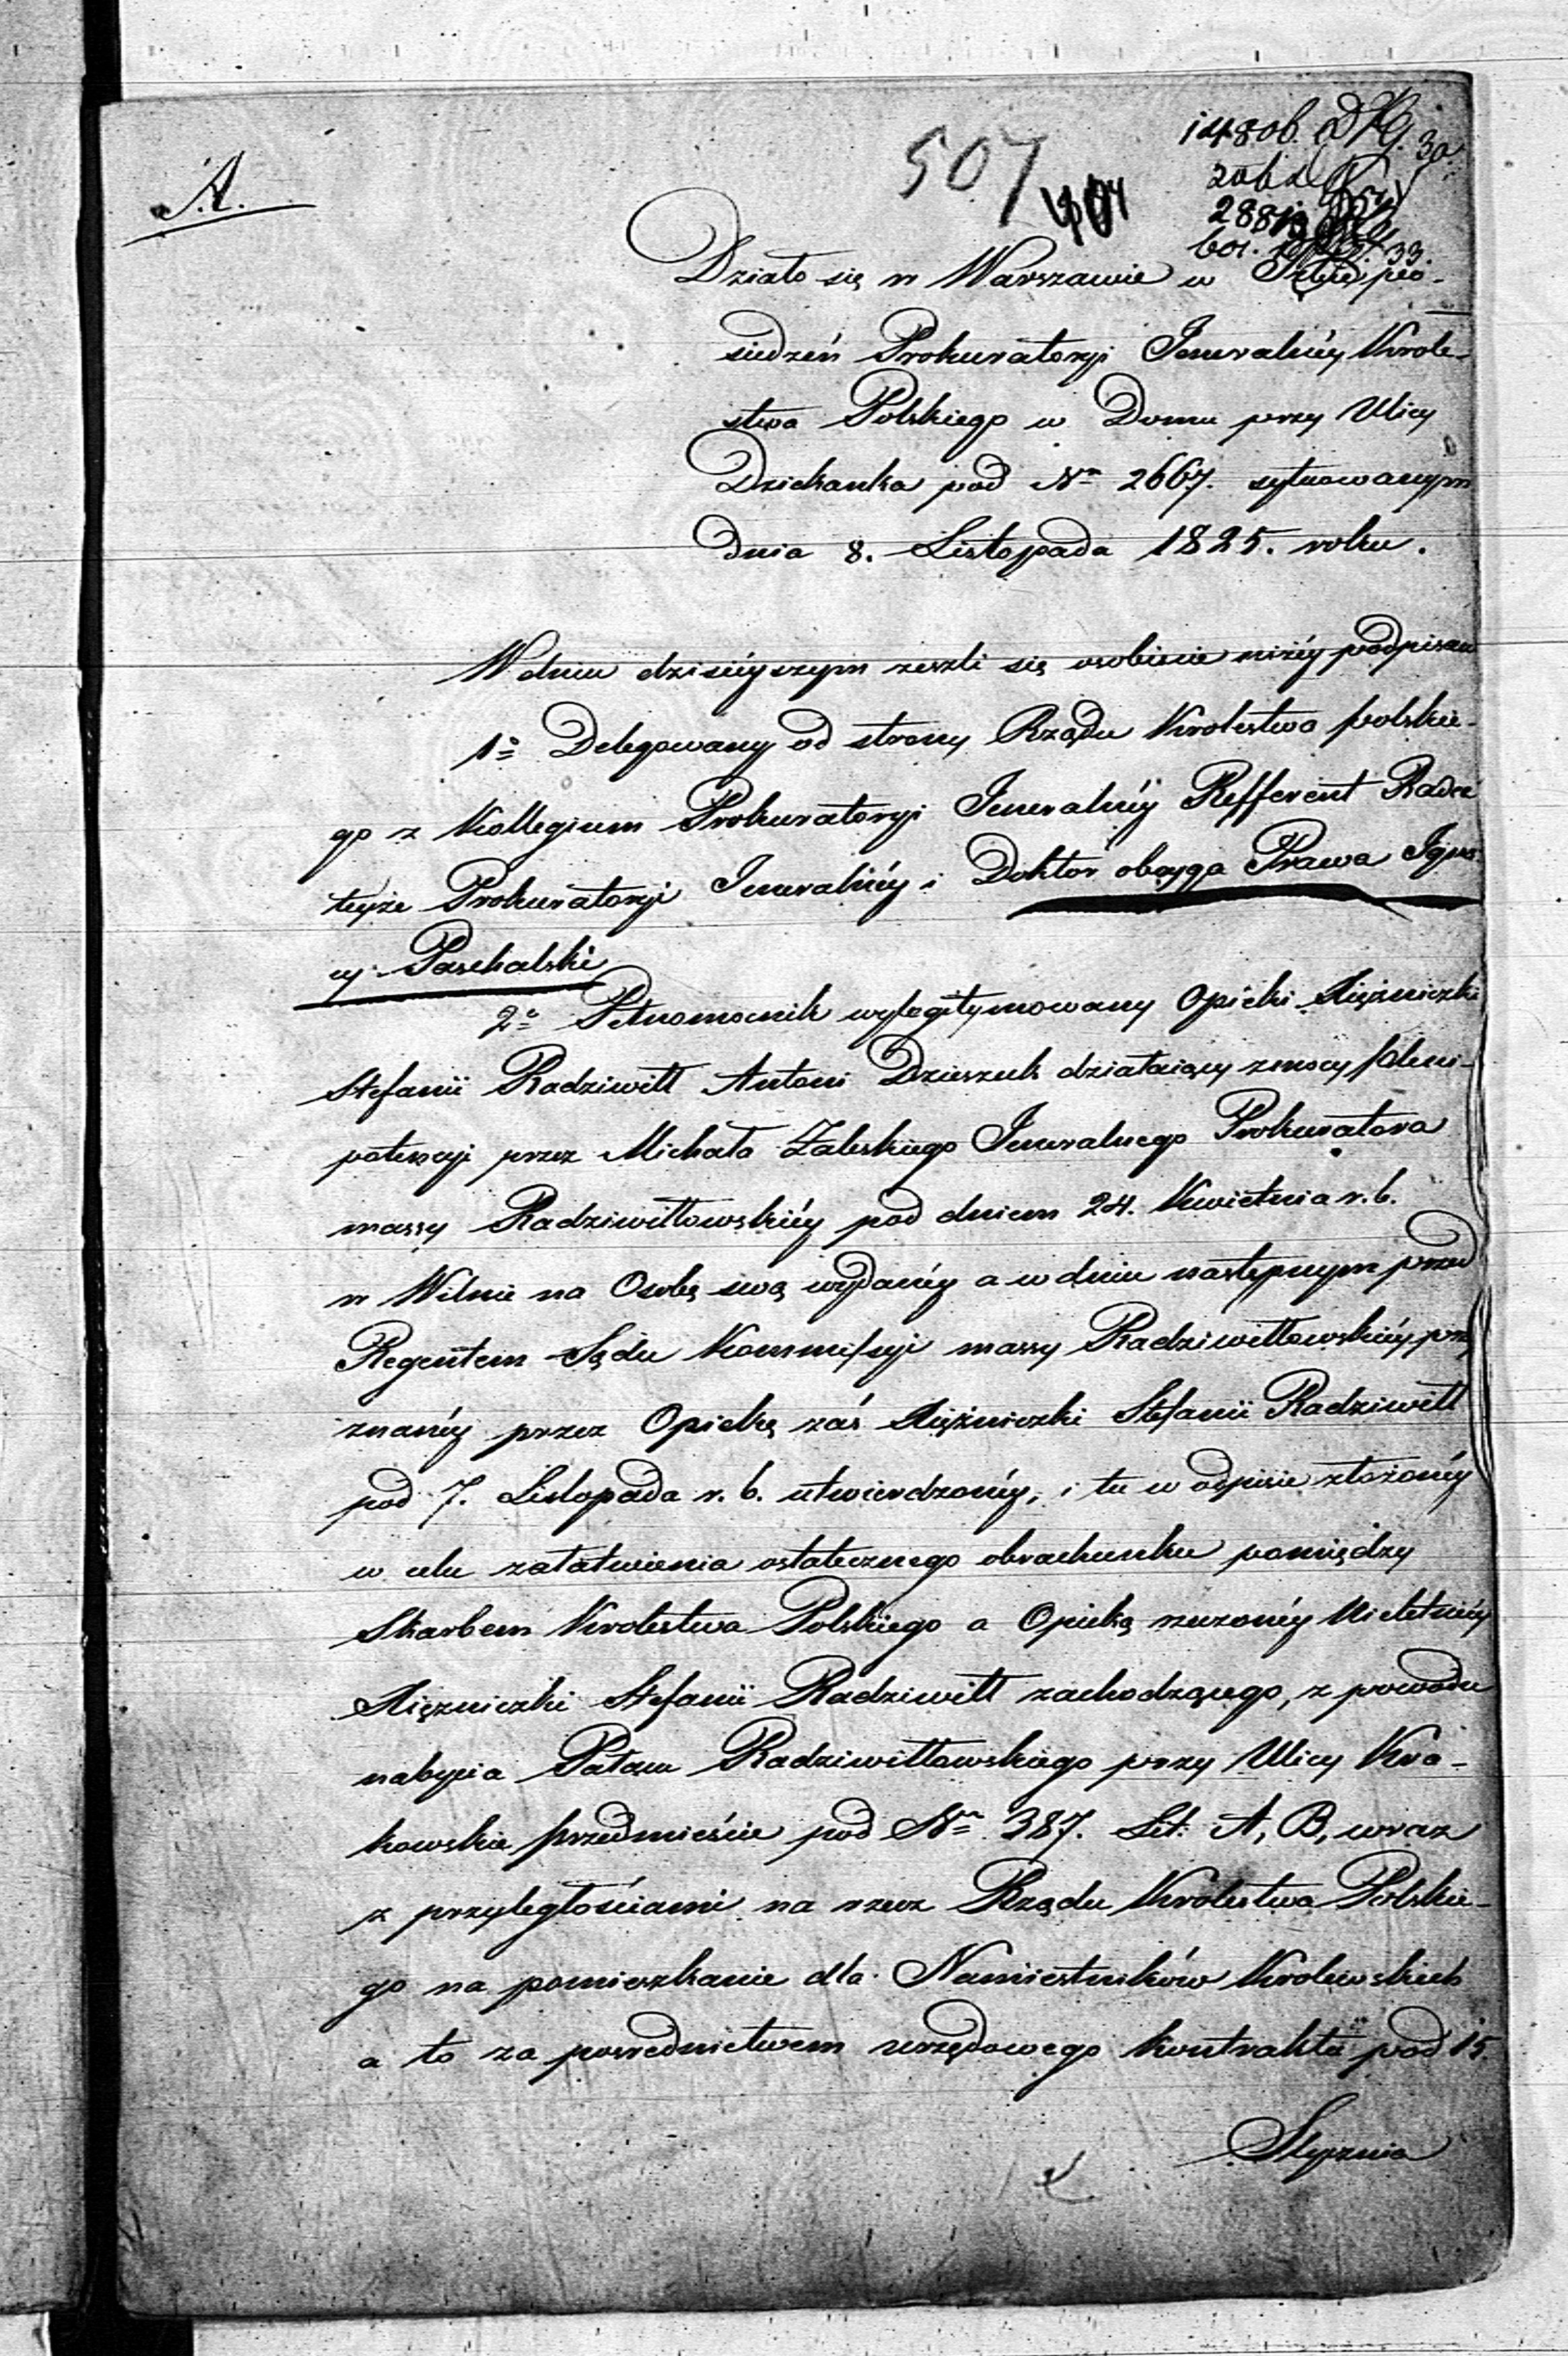 A.
507
Działo się w Warszawie w Izbie po-
siedzeń Prokuratoryi Jeneralnéy Krole-
stwa Polskiego w Domu przy Ulicy
Dziekanka pod Nrm 2667. sytuowanym
dnia 8. Listopada 1825. roku.
W dniu dzisieyszym zeszli się osobiscie niżéy podpisani
1o Delegowany od strony Rządu Krolestwa polskie-
go z Kollegium Prokuratoryi Jeneralnéy Refferent Radca
teyże Prokuratoryi Jeneralnéy i Doktor oboyga Prawa Igna-
cy Paschalski
2o Pełnomocnik wylegitymowany Opieki Xiężniczki
Stefanii Radziwiłł Antoni Dzieszuk działaiący z mocy pleni-
potencyi przez Michała Zaleskiego Jeneralnego Prokuratora
massy Radziwiłłowskiéy pod dniem 24. Kwietnia r. b.
w Wilnie na Osobę swą wydanéy a w dniu następnym przed
Regentem Sądu Kommissyi massy Radziwiłłowskiéy przy
znanéy przez Opiekę zaś Xiężniczki Stefanii Radziwiłł
pod 7. Listopada r. b. utwierdzonéy, i tu w odpisie złożonéy
w celu załatwienia ostatecznego obrachunku pomiędzy
Skarbem Krolestwa Polskiego a Opieką rzeczonéy Nieletniéy
Xiężniczki Stefanii Radziwiłł zachodzącego, z powodu
nabycia Pałacu Radziwiłłowskiego przy Ulicy Kra-
kowskie przedmieście pod Nrm 387. Lit: A, B, wraz
z przyległościami na rzecz Rządu Krolestwa Polskie-
go na pomieszkanie dla Namiestników Krolewskich
a to za posrednictwem urzędowego kontraktu pod 15.
Stycznia